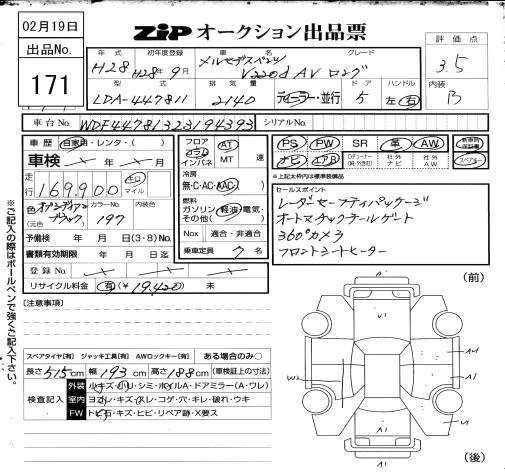 02月19日
出品No.
171
ZiP オークション出品票
評価点
3.5
内装
B
年式 初年度登録 車名 グレード
H28 H28年9月 メルセデスベンツ V220d AV ロング
型式 排気量 ドア ハンドル
LDA-447811 2140 ディーラー・並行 5 左 右
車台No. WDF44781323194393 シリアルNo.
車歴 自家用・レンタ・( )
車検 年 月
走行 169,900 キロ マイル
色 オブシディアンブラック カラーNo 197 内装色
予備検 年 月 日(3・8)No.
書類有効期限 年 月 日迄
登録No.
リサイクル料金 有(¥19,420) 未
フロア コラム インパネ AT MT 速
冷房 無・C・AC・AAC・( )
燃料 ガソリン・軽油・電気・その他( )
Nox 適合・非適合
乗車定員 7名
PS PW SR 革 AW 新車時保証書
ナビ エアB 社外ナビ 社外AW スペアキー
※上記太枠内は標準装備品
セールスポイント
レーダーセーフティパッケージ
オートマチックテールゲート
360°カメラ
フロントシートヒーター
※ご記入の際はボールペンで強くご記入下さい。
[注意事項]
スペアタイヤ[有] ジャッキ工具[有] AWロックキー[有] ある場合のみ○
長さ515cm 幅193cm 高さ188cm (車検証上の寸法)
検査記入
外装 小キズ・ハリ・シミ・ホイルA・ドアミラー(A・ワレ)
室内 ヨゴレ・キズ・スレ・コゲ・穴・キレ・破れ・ウキ
FW トビ石・キズ・ヒビ・リペア跡・X要ス
(前)
U1
A1
W2
AU1
U1
A1
(後)